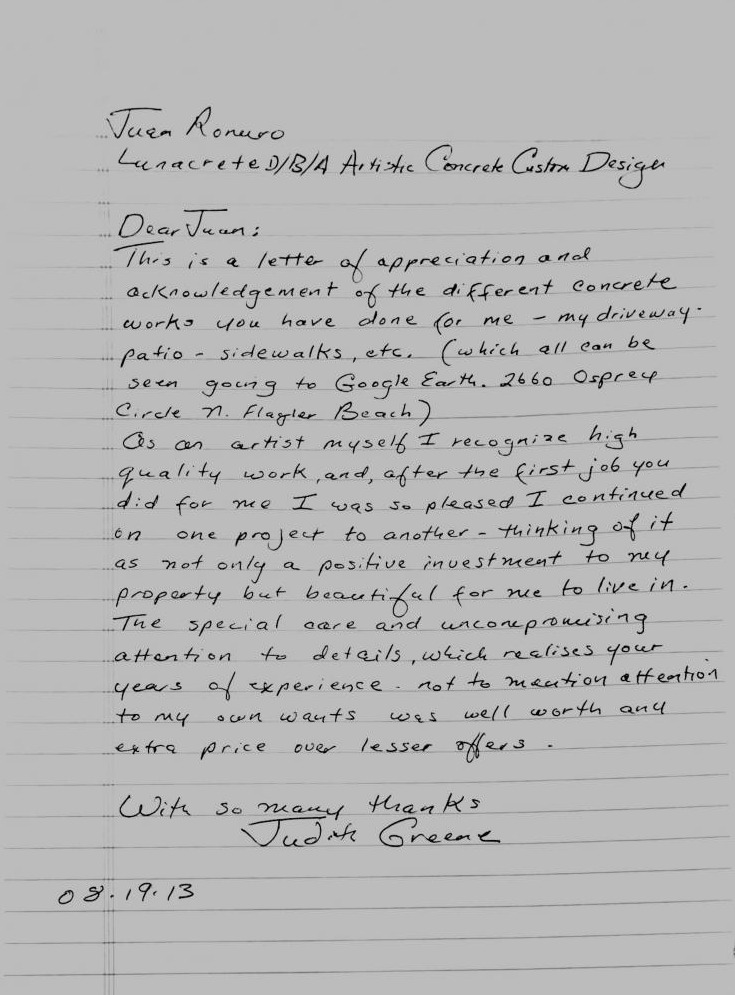 Juan Romero
Lunacrete D/B/A Artistic Concrete Custom Design
Dear Juan:
This is a letter of appreciation and
acknowledgement of the different concrete
works you have done for me - my driveway -
patio - sidewalks, etc. (which all can be
seen going to Google Earth. 2660 Osprey
Circle N. Flagler Beach)
As an artist myself I recognize high
quality work, and, after the first job you
did for me I was so pleased I continued
on one project to another - thinking of it
as not only a positive investment to my
property but beautiful for me to live in.
The special care and uncompromising
attention to details, which realises your
years of experience - not to mention attention
to my own wants was well worth any
extra price over lesser offers.
With so many thanks
Judith Greene
08.19.13